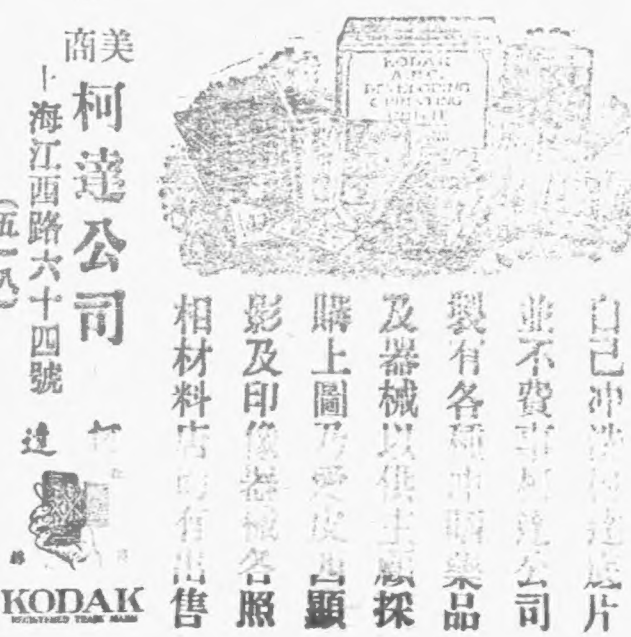 KODAK
A.B.C.
DEVELOPING
& PRINTING
自己冲洗柯達底片
並不費事柯達公司
製有各種冲晒藥品
及器械以供主顧採
購上圖乃愛皮西顯
影及印像器械各照
相材料店均有出售
美商
柯達公司
上海江西路六十四號
(五一八)
柯達
KODAK
REGISTERED TRADE MARK